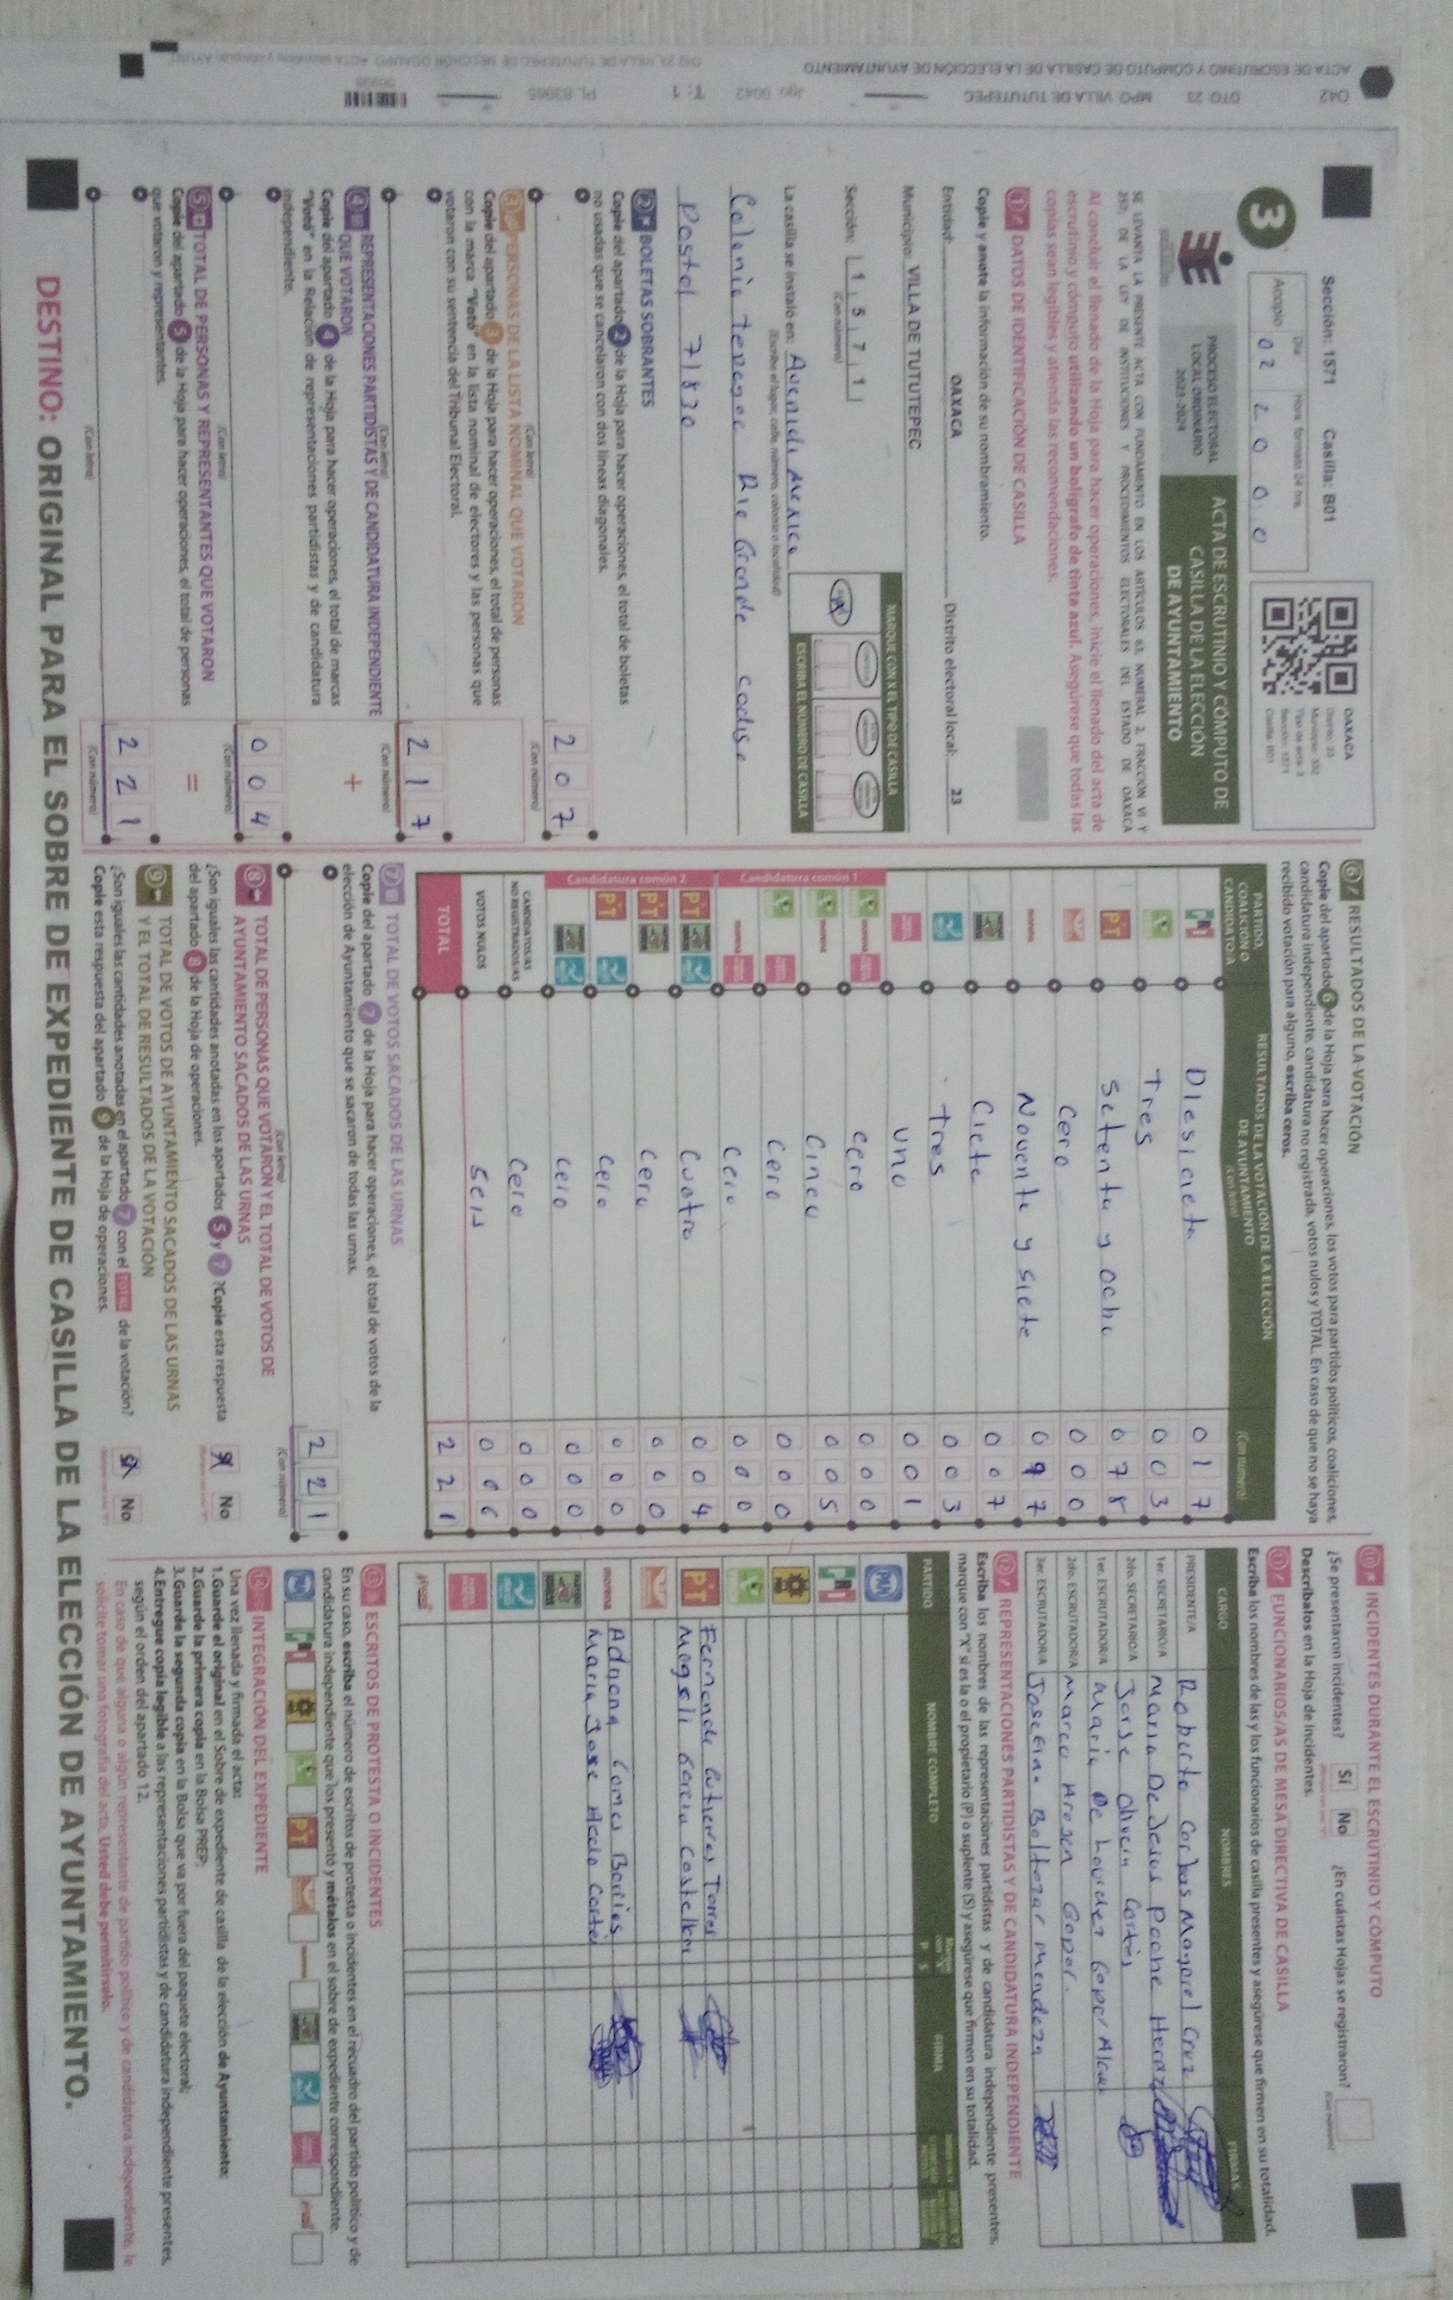 Sección: 1571 Casilla: B01
OAXACA
Distrito: 23
Sección: 1571
Casilla: B01
3
Acopio
Día
Hora formato 24 hrs.
02 20 00
PROCESO ELECTORAL
LOCAL ORDINARIO
2023-2024
ACTA DE ESCRUTINIO Y CÓMPUTO DE
CASILLA DE LA ELECCIÓN
DE AYUNTAMIENTO
SE LEVANTA LA PRESENTE ACTA CON FUNDAMENTO EN LOS ARTÍCULOS 63, NUMERAL 2, FRACCIÓN VI Y
257; DE LA LEY DE INSTITUCIONES Y PROCEDIMIENTOS ELECTORALES DEL ESTADO DE OAXACA
Al concluir el llenado de la Hoja para hacer operaciones, inicie el llenado del acta de
escrutinio y cómputo utilizando un bolígrafo de tinta azul. Asegúrese que todas las
copias sean legibles y atienda las recomendaciones.
1 DATOS DE IDENTIFICACIÓN DE CASILLA
Copie y anote la información de su nombramiento.
Entidad: OAXACA Distrito electoral local: 23
Municipio: VILLA DE TUTUTEPEC
Sección: 1 5 7 1
(Con número)
MARQUE CON X EL TIPO DE CASILLA
ESCRIBA EL NÚMERO DE CASILLA
La casilla se instaló en: Avenida Mexico
(Escriba el lugar, calle, número, colonia o localidad)
Colonia Tepeyec Rio Grande codigo
Postal 71830
2 BOLETAS SOBRANTES
Copie del apartado 2 de la Hoja para hacer operaciones, el total de boletas
no usadas que se cancelaron con dos líneas diagonales.
207
(Con letra) (Con número)
3 PERSONAS DE LA LISTA NOMINAL QUE VOTARON
Copie del apartado 3 de la Hoja para hacer operaciones, el total de personas
con la marca "Votó" en la lista nominal de electores y las personas que
votaron con su sentencia del Tribunal Electoral.
217
(Con letra) (Con número)
4 REPRESENTACIONES PARTIDISTAS Y DE CANDIDATURA INDEPENDIENTE
QUE VOTARON
Copie del apartado 4 de la Hoja para hacer operaciones, el total de marcas
"Votó" en la Relación de representaciones partidistas y de candidatura
independiente.
+
004
(Con letra) (Con número)
5 TOTAL DE PERSONAS Y REPRESENTANTES QUE VOTARON
Copie del apartado 5 de la Hoja para hacer operaciones, el total de personas
que votaron y representantes.
=
221
(Con letra) (Con número)
6 RESULTADOS DE LA VOTACIÓN
Copie del apartado 6 de la Hoja para hacer operaciones, los votos para partidos políticos, coaliciones,
candidatura independiente, candidatura no registrada, votos nulos y TOTAL. En caso de que no se haya
recibido votación para alguno, escriba ceros.
PARTIDO,
COALICIÓN O
CANDIDATO/A
RESULTADOS DE LA VOTACIÓN DE LA ELECCIÓN
DE AYUNTAMIENTO
(Con letra)
(Con número)
PRI Diesiciete 017
Tres 003
PT Setenta y ocho 078
cero 000
morena Noventa y siete 097
Ciete 007
tres 003
uno 001
Candidatura común 1
cero 000
morena Cinco 005
cero 000
morena cero 000
Candidatura común 2
PT cuatro 004
PT cero 000
PT cero 000
cero 000
CANDIDATOS/AS
NO REGISTRADOS/AS cero 000
VOTOS NULOS seis 006
TOTAL 221
7 TOTAL DE VOTOS SACADOS DE LAS URNAS
Copie del apartado 7 de la Hoja para hacer operaciones, el total de votos de la
elección de Ayuntamiento que se sacaron de todas las urnas.
221
(Con letra) (Con número)
8 TOTAL DE PERSONAS QUE VOTARON Y EL TOTAL DE VOTOS DE
AYUNTAMIENTO SACADOS DE LAS URNAS
¿Son iguales las cantidades anotadas en los apartados 5 y 7? Copie esta respuesta
del apartado 8 de la Hoja de operaciones.
Sí No
9 TOTAL DE VOTOS DE AYUNTAMIENTO SACADOS DE LAS URNAS
Y EL TOTAL DE RESULTADOS DE LA VOTACIÓN
¿Son iguales las cantidades anotadas en el apartado 7 con el TOTAL de la votación?
Copie esta respuesta del apartado 9 de la Hoja de operaciones.
Sí No
10 INCIDENTES DURANTE EL ESCRUTINIO Y CÓMPUTO
¿Se presentaron incidentes? Sí No ¿En cuántas Hojas se registraron?
Descríbalos en la Hoja de Incidentes.
11 FUNCIONARIOS/AS DE MESA DIRECTIVA DE CASILLA
Escriba los nombres de las y los funcionarios de casilla presentes y asegúrese que firmen en su totalidad.
CARGO NOMBRES FIRMAS
PRESIDENTE/A Roberto Cortes Mayorel Cruz
1er. SECRETARIO/A Maria De Jesus Peche
2do. SECRETARIO/A Jorge Olvera Cortés
1er. ESCRUTADOR/A Maria De Lourdes Gopar
2do. ESCRUTADOR/A Marco Gopar.
3er. ESCRUTADOR/A Josefina Baltazar Mendoza
12 REPRESENTACIONES PARTIDISTAS Y DE CANDIDATURA INDEPENDIENTE
Escriba los nombres de las representaciones partidistas y de candidatura independiente presentes,
marque con "X" si es la o el propietario (P) o suplente (S) y asegúrese que firmen en su totalidad.
PARTIDO NOMBRE COMPLETO P S FIRMA
PAN
PRI
PT Fernando Gutierrez Torres
Magali
morena Adriana Gomez Barrios
Maria Jose
13 ESCRITOS DE PROTESTA O INCIDENTES
En su caso, escriba el número de escritos de protesta o incidentes en el recuadro del partido político y de
candidatura independiente que los presentó y métalos en el sobre de expediente correspondiente.
14 INTEGRACIÓN DEL EXPEDIENTE
Una vez llenada y firmada el acta:
1. Guarde el original en el Sobre de expediente de casilla de la elección de Ayuntamiento;
2. Guarde la primera copia en la Bolsa PREP;
3. Guarde la segunda copia en la Bolsa que va por fuera del paquete electoral;
4. Entregue copia legible a las representaciones partidistas y de candidatura independiente presentes,
según el orden del apartado 12.
En caso de que alguna o algún representante de partido político y de candidatura independiente, le
solicite tomar una fotografía del acta, Usted debe permitírselo.
DESTINO: ORIGINAL PARA EL SOBRE DE EXPEDIENTE DE CASILLA DE LA ELECCIÓN DE AYUNTAMIENTO.
ACTA DE ESCRUTINIO Y CÓMPUTO DE CASILLA DE LA ELECCIÓN DE AYUNTAMIENTO
042 DTO: 23 MPO: VILLA DE TUTUTEPEC
Jgo: 0042 T: 1